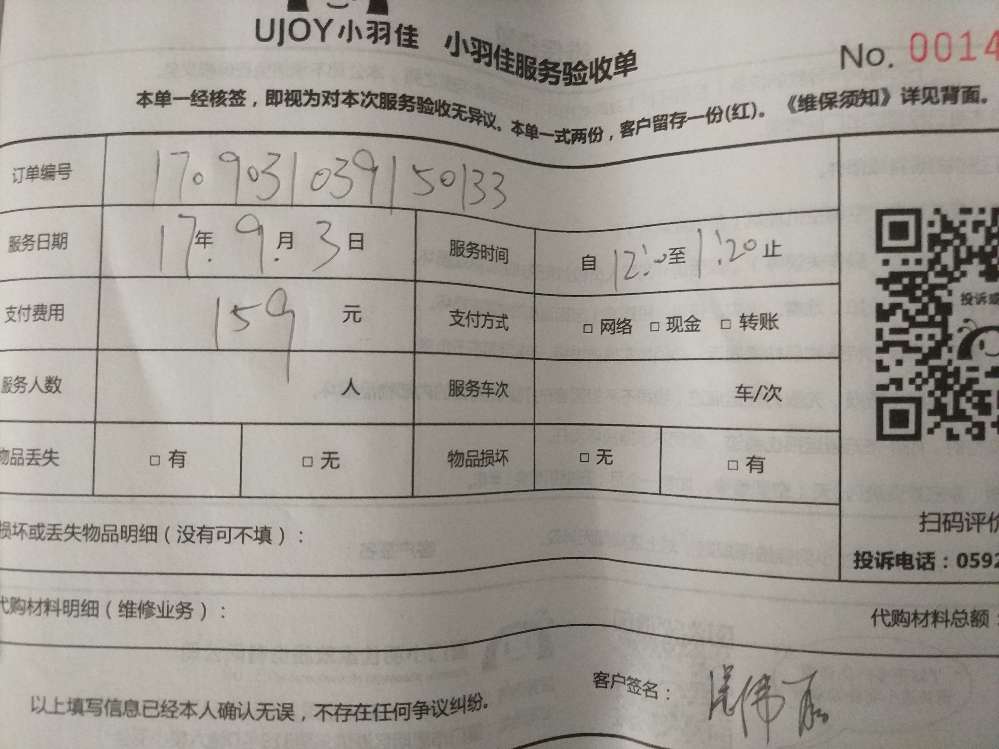 UJOY小羽佳 小羽佳服务验收单 No. 0014
本单一经核签，即视为对本次服务验收无异议。本单一式两份，客户留存一份(红)。《维保须知》详见背面。
订单编号 1709031039150133
服务日期 17年.9.月3日 服务时间 自12:00至1:20止
支付费用 159元 支付方式 □ 网络 □ 现金 □ 转账
服务人数 人 服务车次 车/次
投诉
物品丢失 □ 有 □ 无 物品损坏 □ 无 □ 有
扫码评价
损坏或丢失物品明细（没有可不填）：
投诉电话：0592
代购材料明细（维修业务）：
代购材料总额：
以上填写信息已经本人确认无误，不存在任何争议纠纷。
客户签名：